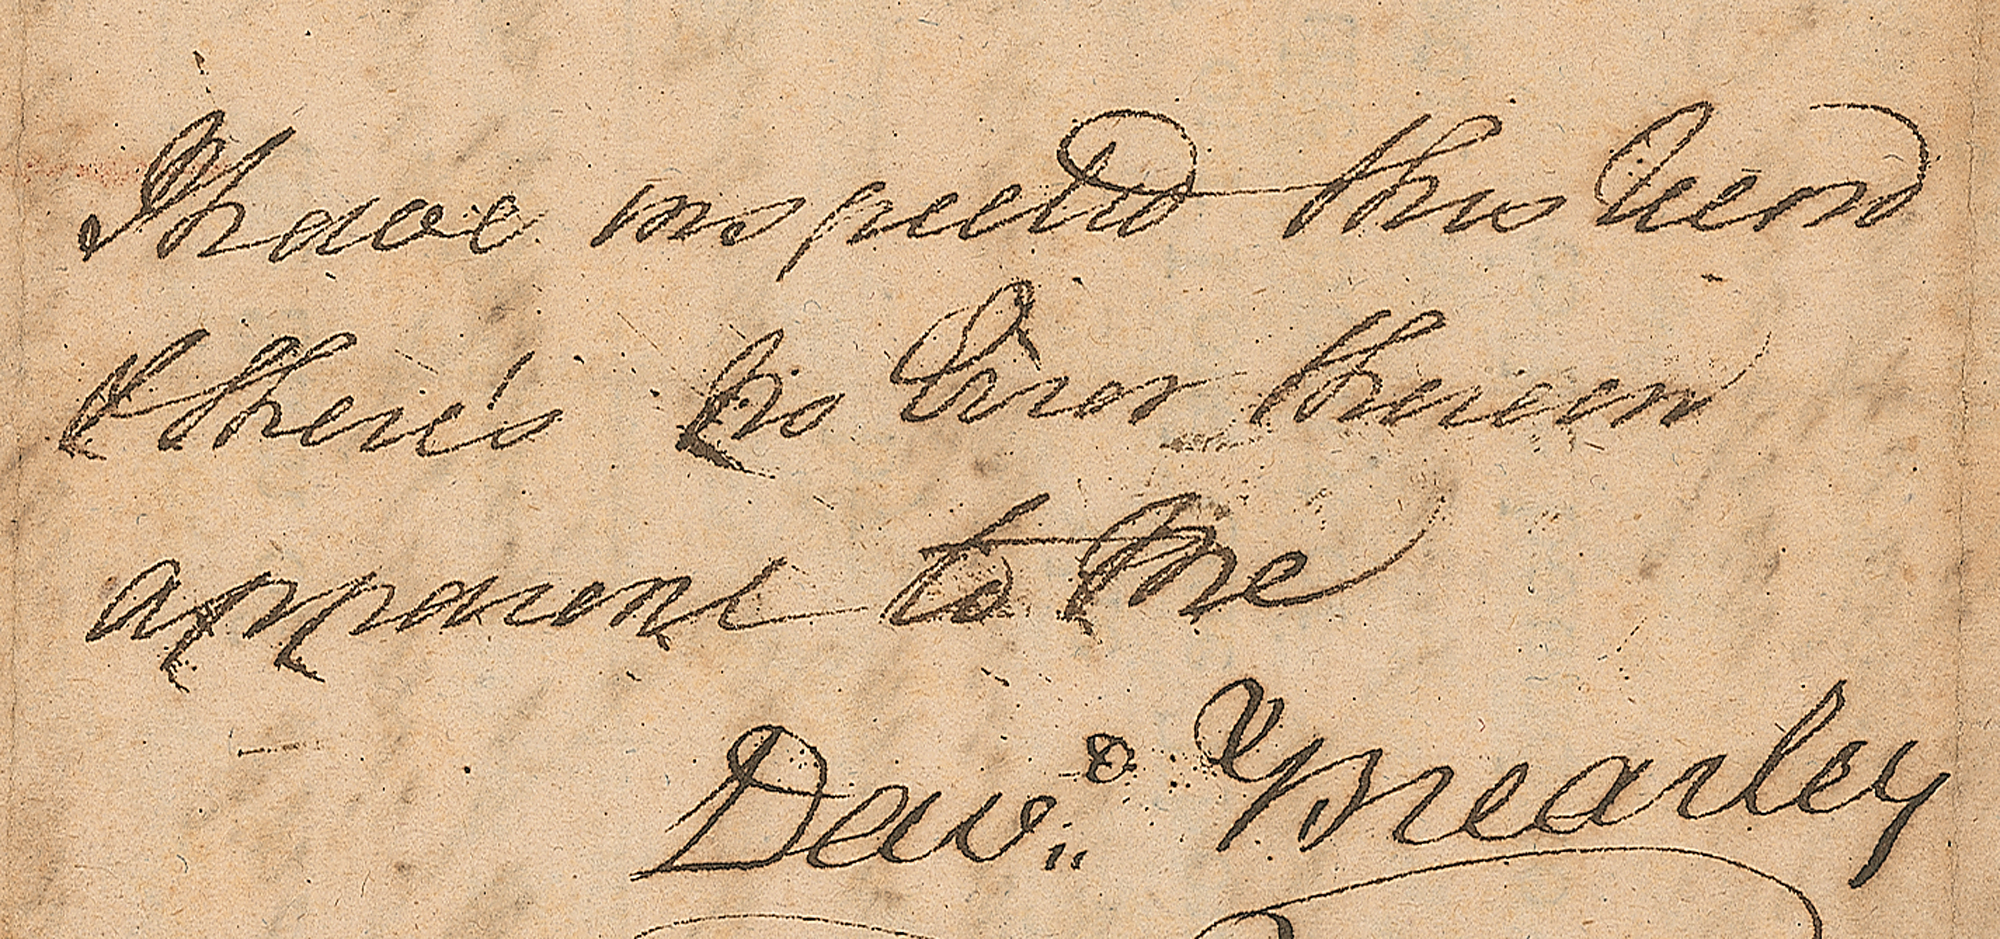 I have inspected this Record
& there's no Error therein
apparent to me
Dav.ᵈ Brearley